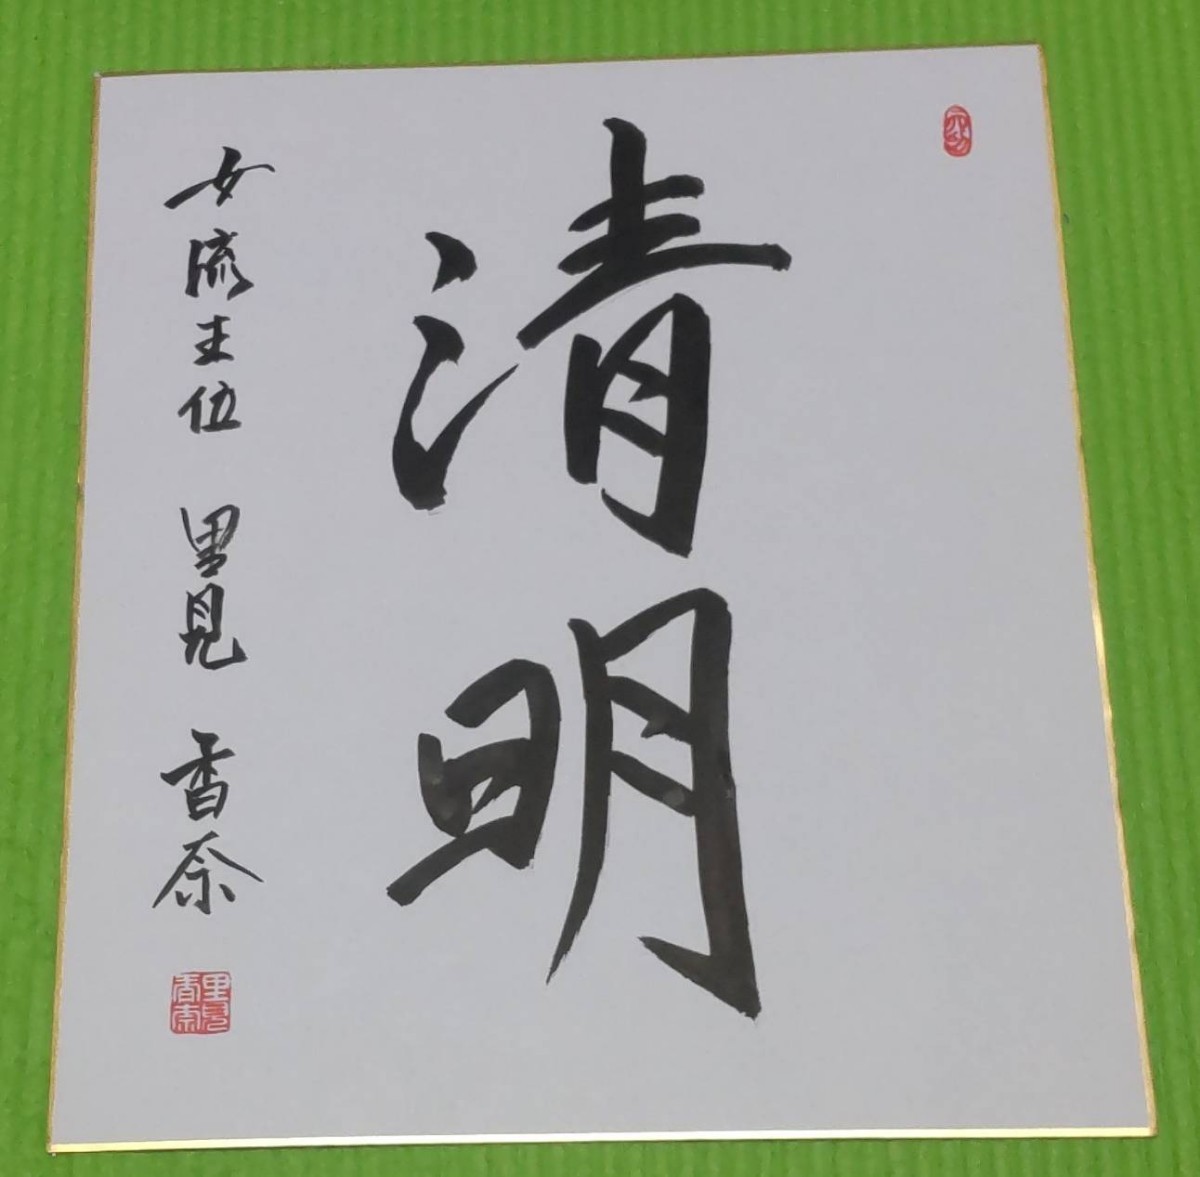 清明
女流王位 里見 香奈
里見
香奈